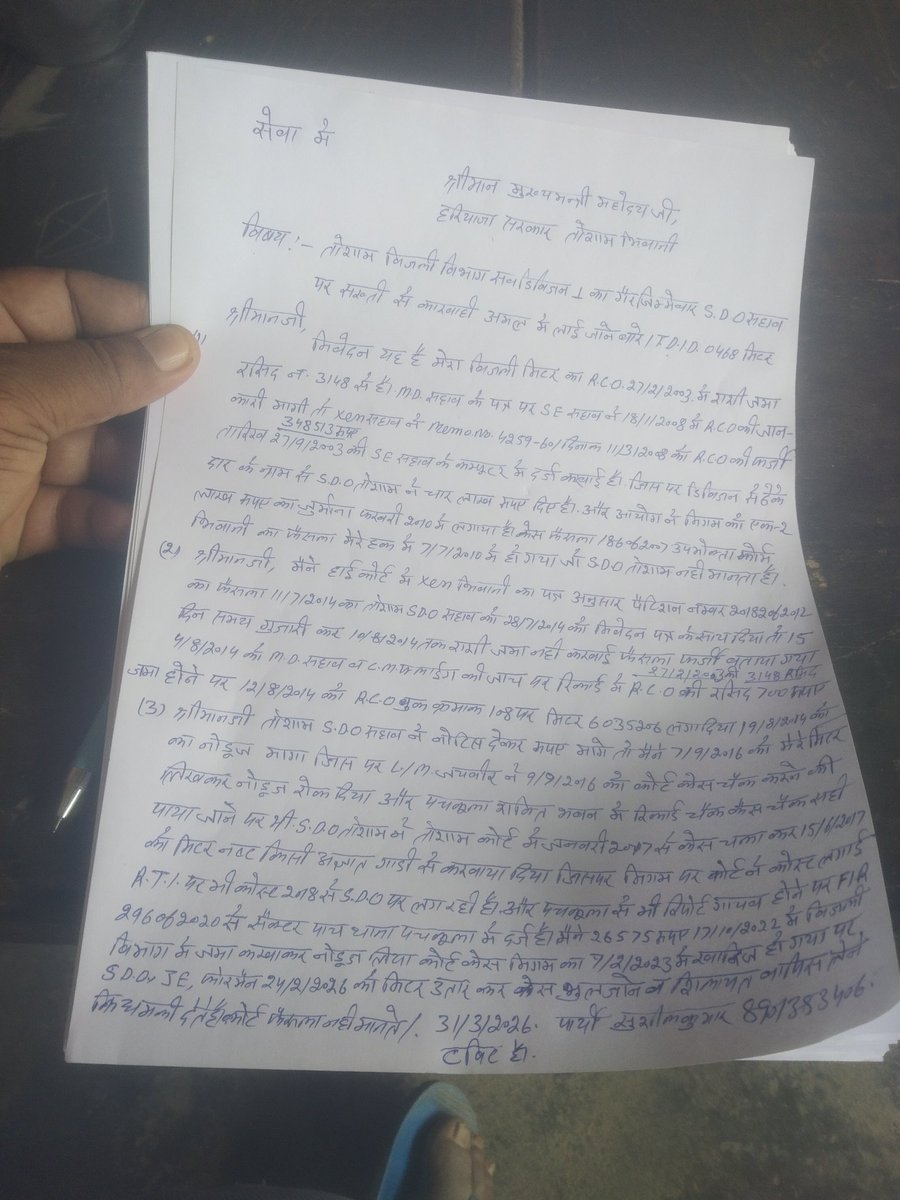 सेवा में
श्रीमान मुख्यमन्त्री महोदय जी,
हरियाणा सरकार तोशाम भिवानी
विषय:- तोशाम बिजली विभाग सबडिविजन 1 का गैर जिम्मेवार S.D.O सहाब
पर सख्ती से कारवाही अमल में लाई जाने बारे। T.D.I.D. 0468 मिटर
श्रीमानजी,
निवेदन यह है मेरा बिजली मिटर का R.C.O. 27/2/2003 में राशी जमा
रसिद न. 3148 से है। M.D. सहाब के पत्र पर SE सहाब ने 18/1/2008 में R.C.O की जान-
कारी मागी तो Xen सहाब ने Memo.No. 4259-60/ दिनांक 11/3/2008 का R.C.O की फर्जी
348513 रूपए
तारिख 27/9/2003 की SE सहाब के कम्प्युटर में दर्ज करवाई है। जिस पर डिविजन से ठेके
दार के नाम से S.D.O तोशाम ने चार लाख रूपए दिए है। और आयोग ने निगम को एक-2
लाख रूपए का जुर्माना फरवरी 2010 में लगाया है। केस फैसला 186 of 2007 उपभोक्ता फोर्म
भिवानी का फैसला मेरे हक में 7/7/2010 में हो गया जो S.D.O तोशाम नही मानता है।
(2) श्रीमानजी, मैने हाई कोर्ट में Xen भिवानी का पत्र अनुसार पैटिशन नम्बर 20182 of 2012
का फैसला 11/7/2014 का तोशाम S.D.O सहाब को 28/7/2014 को निवेदन पत्र के साथ दिया तो 15
दिन समय गुजारी कर 10/8/2014 तक राशी जमा नही करवाई फैसला फर्जी बताया गया
27/2/2003 की 3148 रसिद
4/8/2014 को M.D. सहाब व C.M. की जाच पर रिकार्ड में R.C.O की रसिद 700 रूपए
जमा होने पर 12/8/2014 को R.C.O बुक क्रमाक 108 पर मिटर 6035206 लगा दिया 19/8/2014 को
(3) श्रीमानजी तोशाम S.D.O सहाब ने नोटिस देकर रूपए मागे तो मैने 7/9/2016 को मेरे मिटर
का नोड्यूज मागा जिस पर L/M. ने 9/9/2016 को कोर्ट केस चैक करने की
लिखकर नोड्यूज रोक दिया और पंचकूला शक्ति भवन में रिकार्ड चैक केस चैक सही
पाया जाने पर भी S.D.O तोशाम ने तोशाम कोर्ट में जनवरी 2017 से केस चला कर 15/6/2017
को मिटर नष्ट किसी अज्ञात गाडी से करवाया दिया जिसपर निगम पर कोर्ट ने कोस्ट लगाई
R.T.I. पर भी कोस्ट 2018 से S.D.O पर लग रही है। और पंचकूला से भी रिपोर्ट गायब होने पर FIR
296 of 2020 से सैक्टर पाच थाना पंचकूला में दर्ज है। मैने 26575 रूपए 17/10/2022 में बिजली
विभाग में जमा करवाकर नोड्यूज लिया कोर्ट केस निगम का 7/2/2023 में खारिज हो गया पर
S.D.O, JE, फोरमैन 24/2/2026 को मिटर उतार कर केस भुल जाने व शिकायत वापिस लेने
कि धमकी देते है। कोर्ट फैसला नही मानते। 31/3/2026. प्रार्थी सुशील कुमार 8901383406.
टविट है।